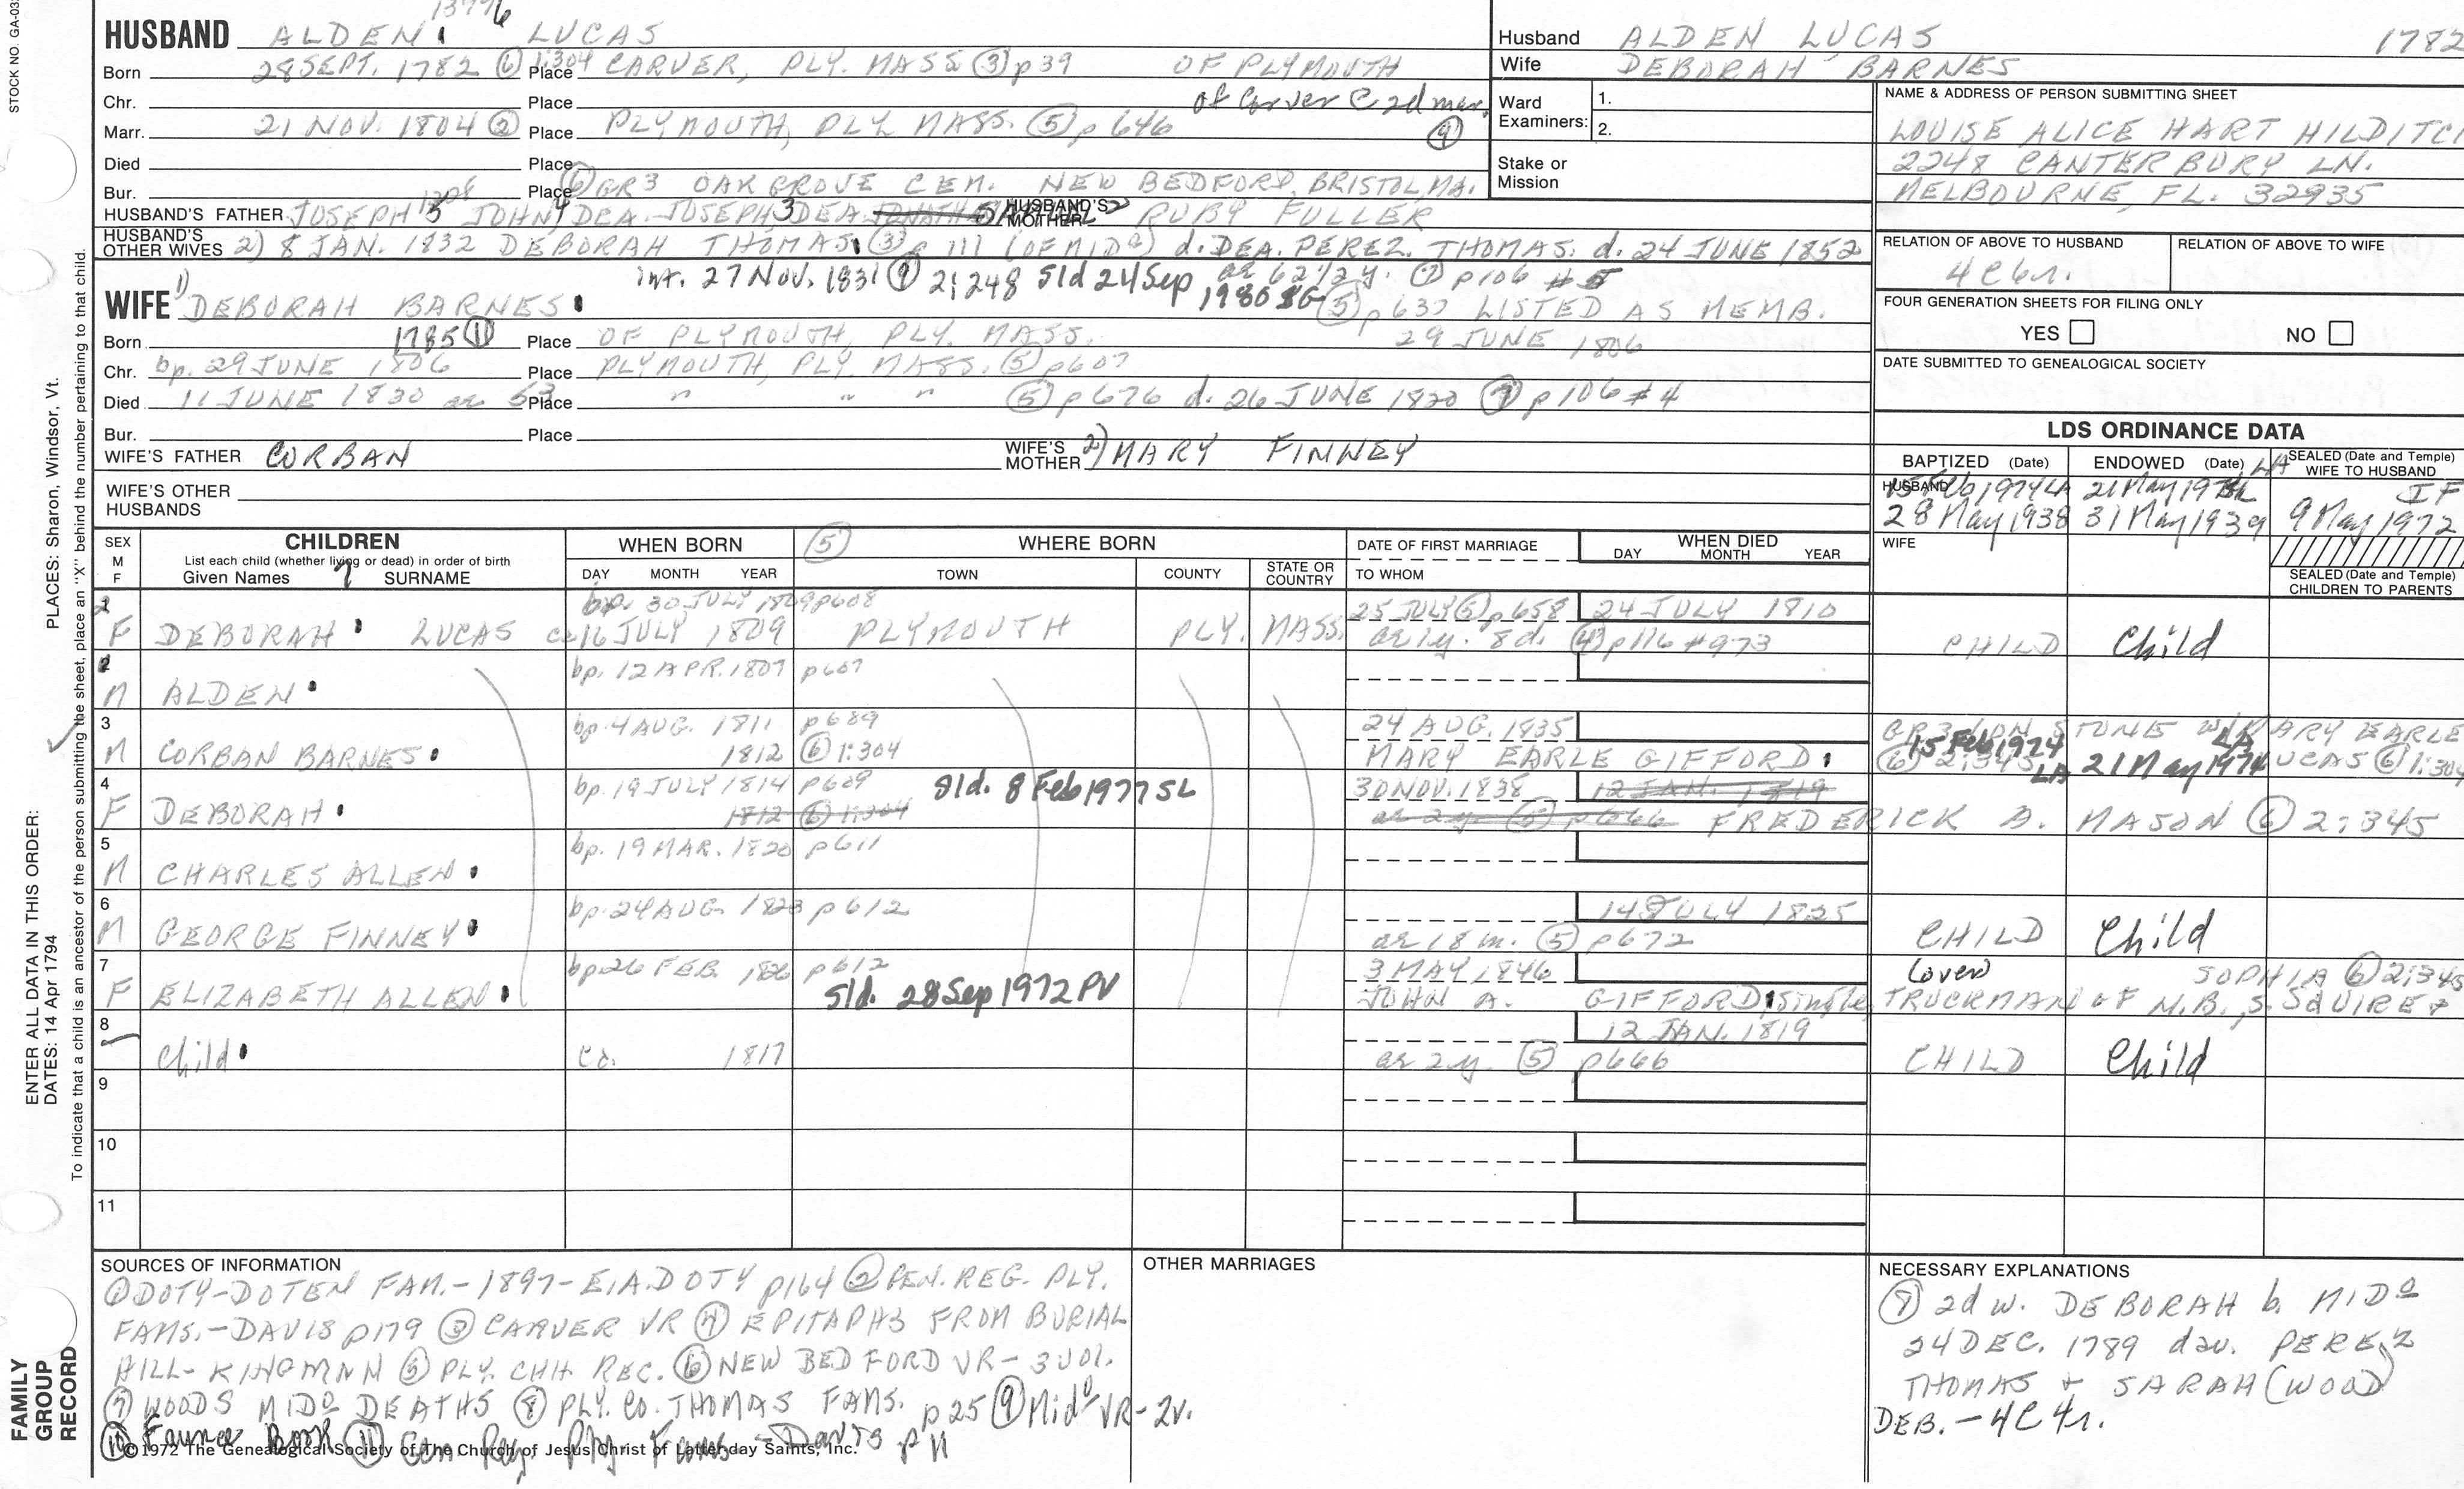 STOCK NO. GA-03
PLACES: Sharon, Windsor, Vt.
ENTER ALL DATA IN THIS ORDER:
DATES: 14 Apr 1794
To indicate that a child is an ancestor of the person submitting the sheet, place an "X" behind the number pertaining to that child.
FAMILY
GROUP
RECORD
HUSBAND ALDEN LUCAS
Born 28 SEPT. 1782 ⑥ 1:304 Place CARVER, PLY. MASS ③ p39 OF PLYMOUTH
Chr. Place of Carver @ 2d mar. ⑨
Marr. 21 NOV. 1804 ② Place PLYMOUTH, PLY. MASS. ⑤ p 646
Died Place
Bur. Place ⑥ GR3 OAK GROVE CEM. NEW BEDFORD, BRISTOL, MA.
HUSBAND'S FATHER JOSEPH 5 JOHN 4 DEA. JOSEPH 3 DEA. HUSBAND'S MOTHER RUBY FULLER
HUSBAND'S OTHER WIVES 2) 8 JAN. 1832 DEBORAH THOMAS ③ p 111 (OF MIDº) d. DEA. PEREZ THOMAS. d. 24 JUNE 1852
int. 27 Nov. 1831 ⑨ 2:248 Sld 24 Sep 1980 SG ae 62 1/2 y. ⑦ p106 #5
WIFE 1) DEBORAH BARNES ⑤ p 637 LISTED AS MEMB.
29 JUNE 1806
Born 1785 ⑪ Place OF PLYMOUTH, PLY. MASS.
Chr. bp. 29 JUNE 1806 Place PLYMOUTH, PLY. MASS. ⑤ p607
Died 11 JUNE 1830 ae 53 Place " " " ⑤ p676 d. 26 JUNE 1830 ⑦ p106 #4
Bur. Place
WIFE'S FATHER CORBAN WIFE'S MOTHER 2) MARY FINNEY
WIFE'S OTHER
HUSBANDS
Husband ALDEN LUCAS 1782
Wife DEBORAH BARNES
Ward Examiners: 1.
2.
Stake or
Mission
NAME & ADDRESS OF PERSON SUBMITTING SHEET
LOUISE ALICE HART HILDITCH
2248 CANTERBURY LN.
MELBOURNE, FL. 32935
RELATION OF ABOVE TO HUSBAND RELATION OF ABOVE TO WIFE
4C6r.
FOUR GENERATION SHEETS FOR FILING ONLY
YES NO
DATE SUBMITTED TO GENEALOGICAL SOCIETY
LDS ORDINANCE DATA
BAPTIZED (Date) ENDOWED (Date) LA SEALED (Date and Temple) WIFE TO HUSBAND
HUSBAND 15 Feb 1974 LA 21 May 1974 IF
28 May 1938 31 May 1939 9 May 1972
WIFE
SEALED (Date and Temple)
CHILDREN TO PARENTS
SEX M F CHILDREN WHEN BORN ⑤ WHERE BORN DATE OF FIRST MARRIAGE WHEN DIED
List each child (whether living or dead) in order of birth
Given Names SURNAME DAY MONTH YEAR TOWN COUNTY STATE OR COUNTRY TO WHOM DAY MONTH YEAR
1 bp. 30 JULY 1809 p608 25 JULY ⑤ p658 24 JULY 1810
F DEBORAH LUCAS ca 16 JULY 1809 PLYMOUTH PLY. MASS. ae 1y. 8d. ④ p116 #973 CHILD Child
2 bp. 12 APR. 1807 p607
M ALDEN
3 bp. 4 AUG. 1811 p689 24 AUG. 1835
M CORBAN BARNES 1812 ⑥ 1:304 MARY EARLE GIFFORD 15 Feb 1974 LA 21 May 1974 LA
4 bp. 19 JULY 1814 p609 Sld. 8 Feb 1977 SL 30 NOV. 1838 12 JAN. 1819
F DEBORAH 1812 ⑥ 1:304 ae 2 y. ⑤ p666 FREDERICK A. MASON ⑥ 2:345
5 bp. 19 MAR. 1820 p611
M CHARLES ALLEN
6 bp. 24 AUG. 1823 p612 14 JULY 1825
M GEORGE FINNEY ae 18 m. ⑤ p672 CHILD Child
7 bp. 26 FEB. 1826 p612 3 MAY 1846 (over) SOPHIA ⑥ 2:345
F ELIZABETH ALLEN Sld. 28 Sep 1972 PV JOHN A. GIFFORD, single, TRUCKMAN OF N.B., S. SQUIRE &
8 12 JAN. 1819
Child ca. 1817 ae 2 y. ⑤ p666 CHILD Child
9
10
11
SOURCES OF INFORMATION
① DOTY-DOTEN FAM.-1897-E.A.DOTY p164 ② GEN. REG. PLY.
FAMS.-DAVIS p179 ③ CARVER VR ④ EPITAPHS FROM BURIAL
HILL-KINGMAN ⑤ PLY. CHH. REC. ⑥ NEW BEDFORD VR-3 VOL.
⑦ WOODS MIDº DEATHS ⑧ PLY. CO. THOMAS FAMS. p25 ⑨ Midº VR-2v.
⑩ Faunce Book ⑪ Gen Reg. Ply Fams - Davis p 11
©1972 The Genealogical Society of The Church of Jesus Christ of Latter-day Saints, Inc.
OTHER MARRIAGES
NECESSARY EXPLANATIONS
⑧ 2d w. DEBORAH b. MIDº
24 DEC. 1789 dau. PEREZ
THOMAS + SARAH (WOOD)
DEB. - 4C4r.